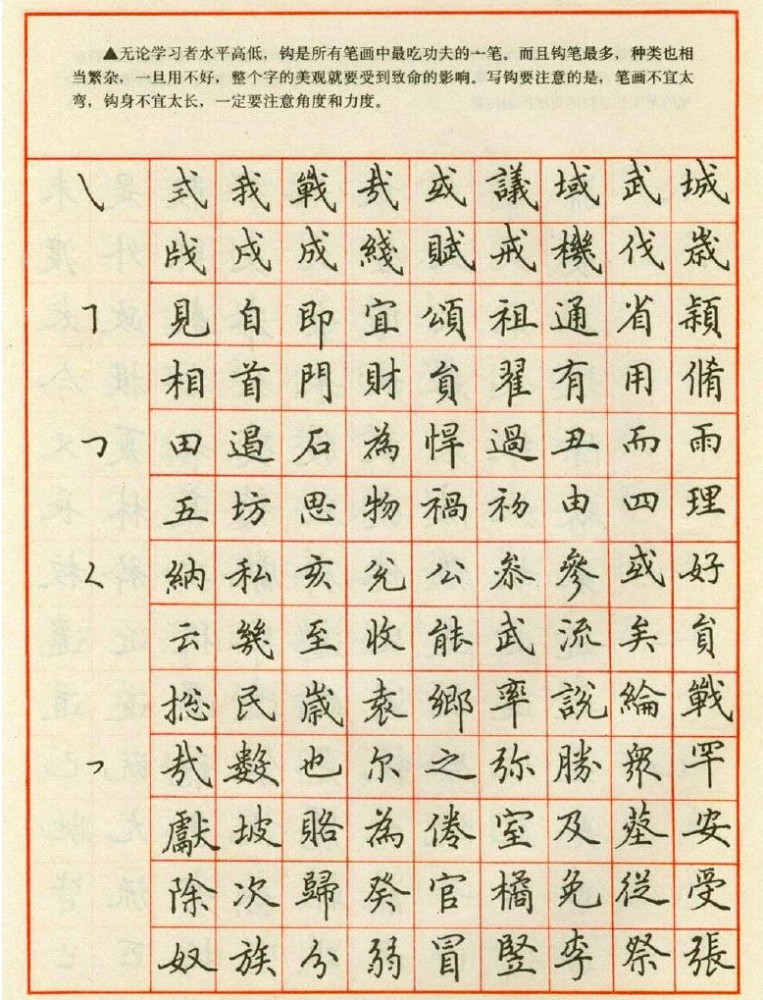 ▲无论学习者水平高低，钩是所有笔画中最吃功夫的一笔。而且钩笔最多，种类也相
当繁杂，一旦用不好，整个字的美观就要受到致命的影响。写钩要注意的是，笔画不宜太
弯，钩身不宜太长，一定要注意角度和力度。
式我戰哉或議域武城
戌成綫賦戒機伐歲
見自即宜頌祖通省穎
相首門財負翟有用脩
田過石為悍過丑而雨
五坊思物禍初由四理
納私亥兖公叅參或好
云幾至收能武流矣負
捴民歲袁鄉率說綸戰
哉數也尔之弥勝眾罕
獻坡賂為倦室及墓安
除次歸癸官橘免從受
奴族分弱冒竪李祭張